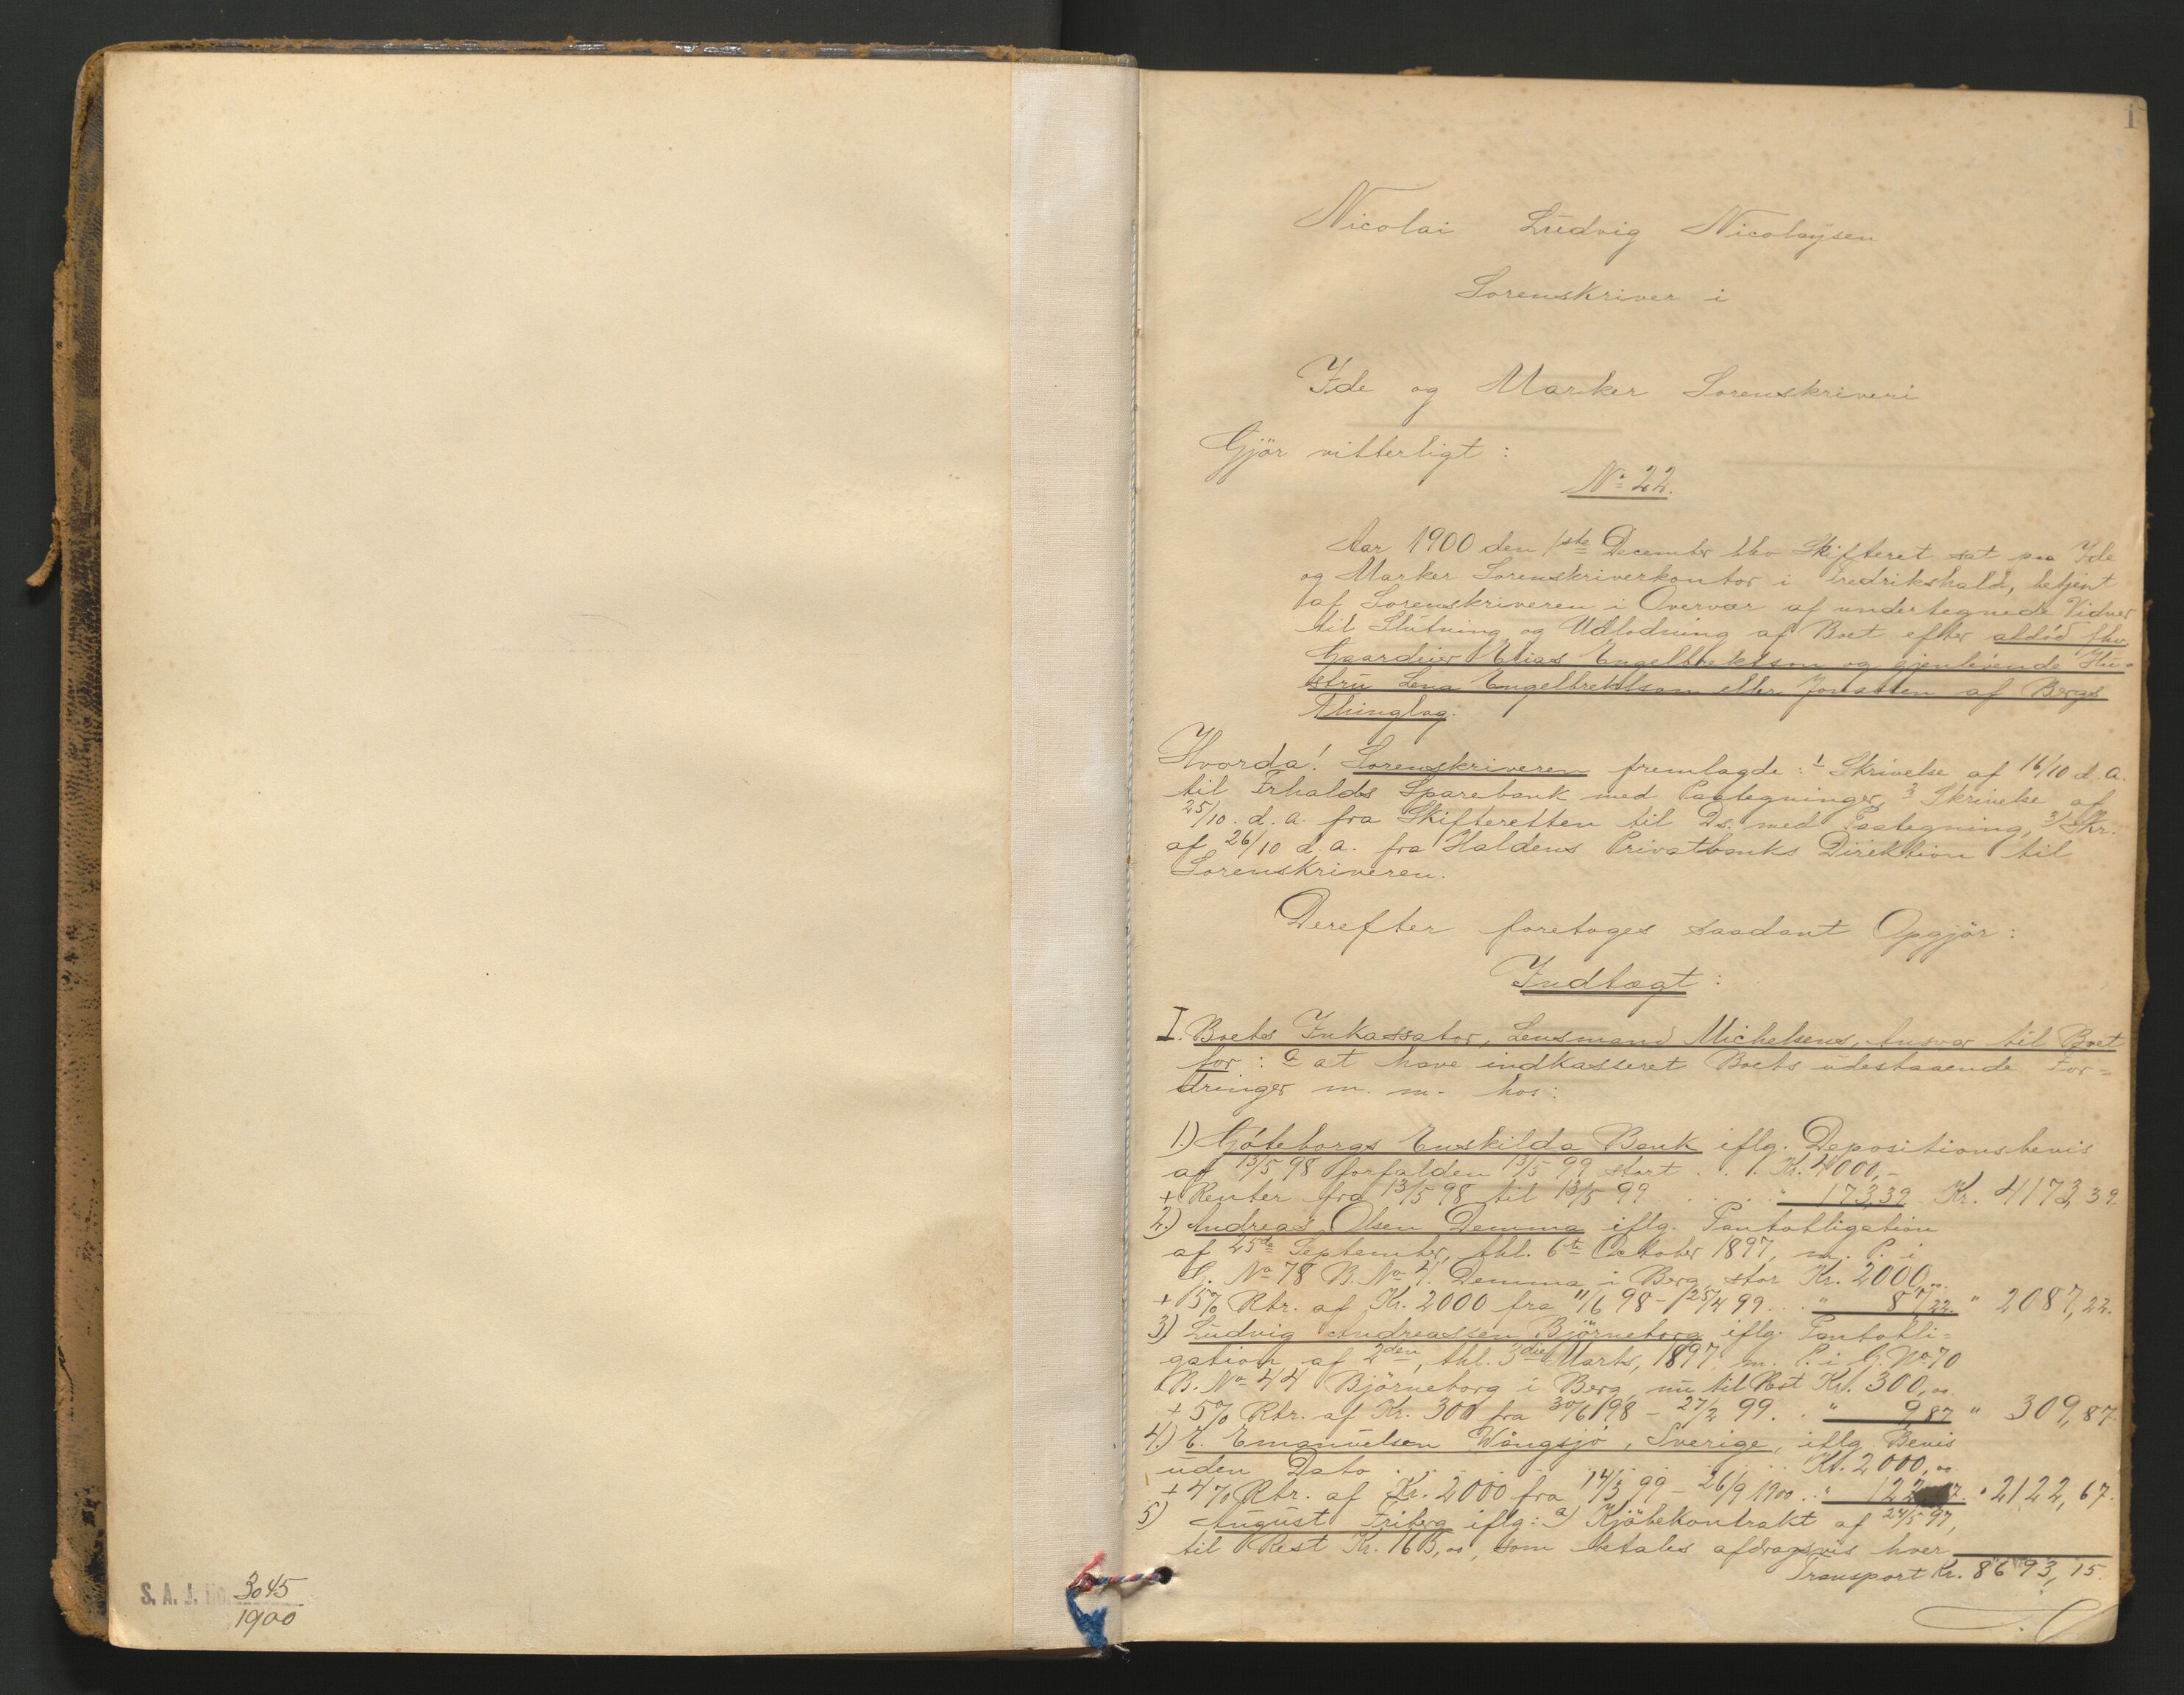 1
Nicolai Ludvig Nicolaysen
Sorenskriver i
Ide og Marker Sorenskriveri
Gjör vitterligt:
No 22.
Aar 1900 den 1ste December blev Skifteret sat paa Ide
og Marker Sorenskriverkontor i Fredrikshald, betjent
af Sorenskriveren i Overvær af undertegnede Vidner
til Slutning og Udlodning af Boet efter afdöd fhv.
Gaardeier Elias Engelbrektson og gjenlevende Hu-
stru Lena Engelbrektson eller Jonassen af Bergs
Thinglag.
Hvorda! Sorenskriveren fremlagde: 1 Skrivelse af 16/10 d. A.
til Frhalds Sparebank med Paategninger, 3 Skrivelse af
25/10. d. a. fra Skifteretten til Ds. med Paategning, 3) Skr.
af 26/10 d. a. fra Haldens Privatbanks Direktion til
Sorenskriveren.
Derefter foretoges saadant Opgjör:
Indtægt:
I. Boets Inkassator, Lensmand Michelsens, Ansvar til Boet
for: a at have indkasseret Boets udestaaende For=
dringer m. m. hos:
1.) Göteborgs Enskilda Bank iflg. Depositionsbevis
af 13/5 98 forfalden 13/5 99 stort . . . Kr. 4000,-
+ Renter fra 13/5 98 til 13/5 99 . . . . " 173,39 Kr. 4173,39.
2.) Andreas Olsen Demma iflg. Pantobligation
af 25de September, thl. 6te October 1897, m. P. i
G. No 78 B. No 4. Demma i Berg, stor Kr. 2000,00
+ 5% Rtr. af Kr. 2000 fra 11/6 98 - 25/4 99 . . " 87,22. " 2087,22.
3) Ludvig Andreassen Björneborg iflg. Pantobli=
gation af 2den, thl. 3die Marts, 1897 m. P. i G. No 70
B. No 44 Björneborg i Berg, nu til Rest Kr. 300,00
+ 5% Rtr. af Kr. 300 fra 30/6 98 - 27/2 99. . " 9,87 " 309,87.
4.) E. Emanuelsen Wångsjö, Sverige, iflg. Bevis
uden Dato . . . . . . . . Kr. 2000,00
+ 4% Rtr. af Kr. 2000 fra 14/3 99 - 26/9 1900 . . " " 2122,67.
5) August Friberg iflg: a) Kjöbekontrakt af 24/5 97,
til Rest Kr. 163,00, som betales afdragsvis hver
Transport Kr. 8693,15.
S. A. J. No. 3045
1900